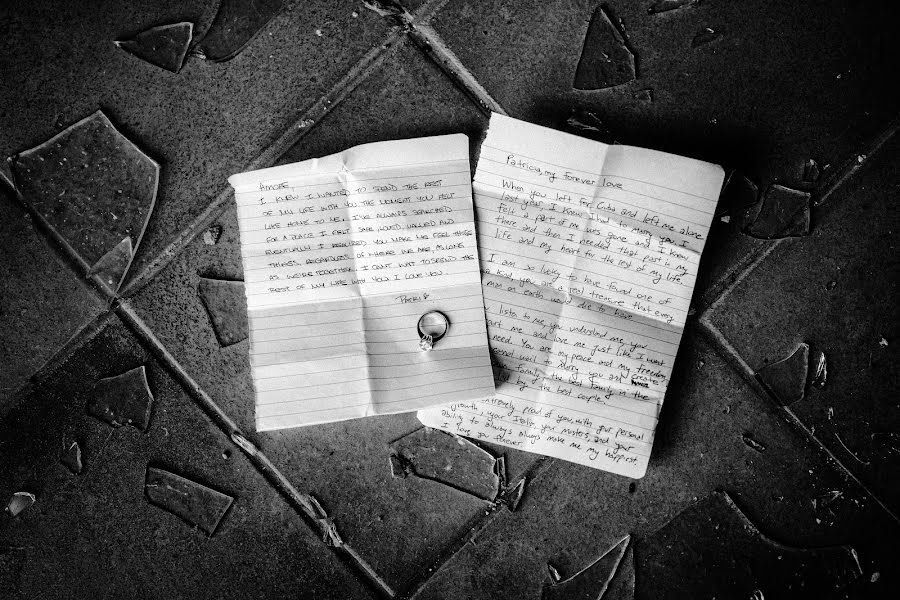 AMORE,
I KNEW I WANTED TO SPEND THE REST
OF MY LIFE WITH YOU THE MOMENT YOU FELT
LIKE HOME TO ME. I'VE ALWAYS SEARCHED
FOR A PLACE I FELT SAFE, LOVED, VALUED AND
EVENTUALLY I REALIZED YOU MAKE ME FEEL THESE
THINGS, REGARDLESS OF WHERE WE ARE, AS LONG
AS WE'RE TOGETHER. I CAN'T WAIT TO SPEND THE
REST OF MY LIFE WITH YOU. I LOVE YOU.
Patricia, my forever love
When you left for Cuba and left me alone
last year, I knew I had to marry you. I
felt a part of me was gone and I knew
there and then I needed that part in my
life and my heart for the rest of my life.
I am so lucky to have found one of
a kind, you are a real treasure that every
man on earth would die to have.
listen to me, you understand me, you
me and love me just like I want
need. You are my peace and my freedom,
wait to marry you and create
family, the best family in the
by the best couple.
extremely proud of you, with your personal
growth, your Italy, your masters, and your
ability to always always make me my happiest.
I love you forever.